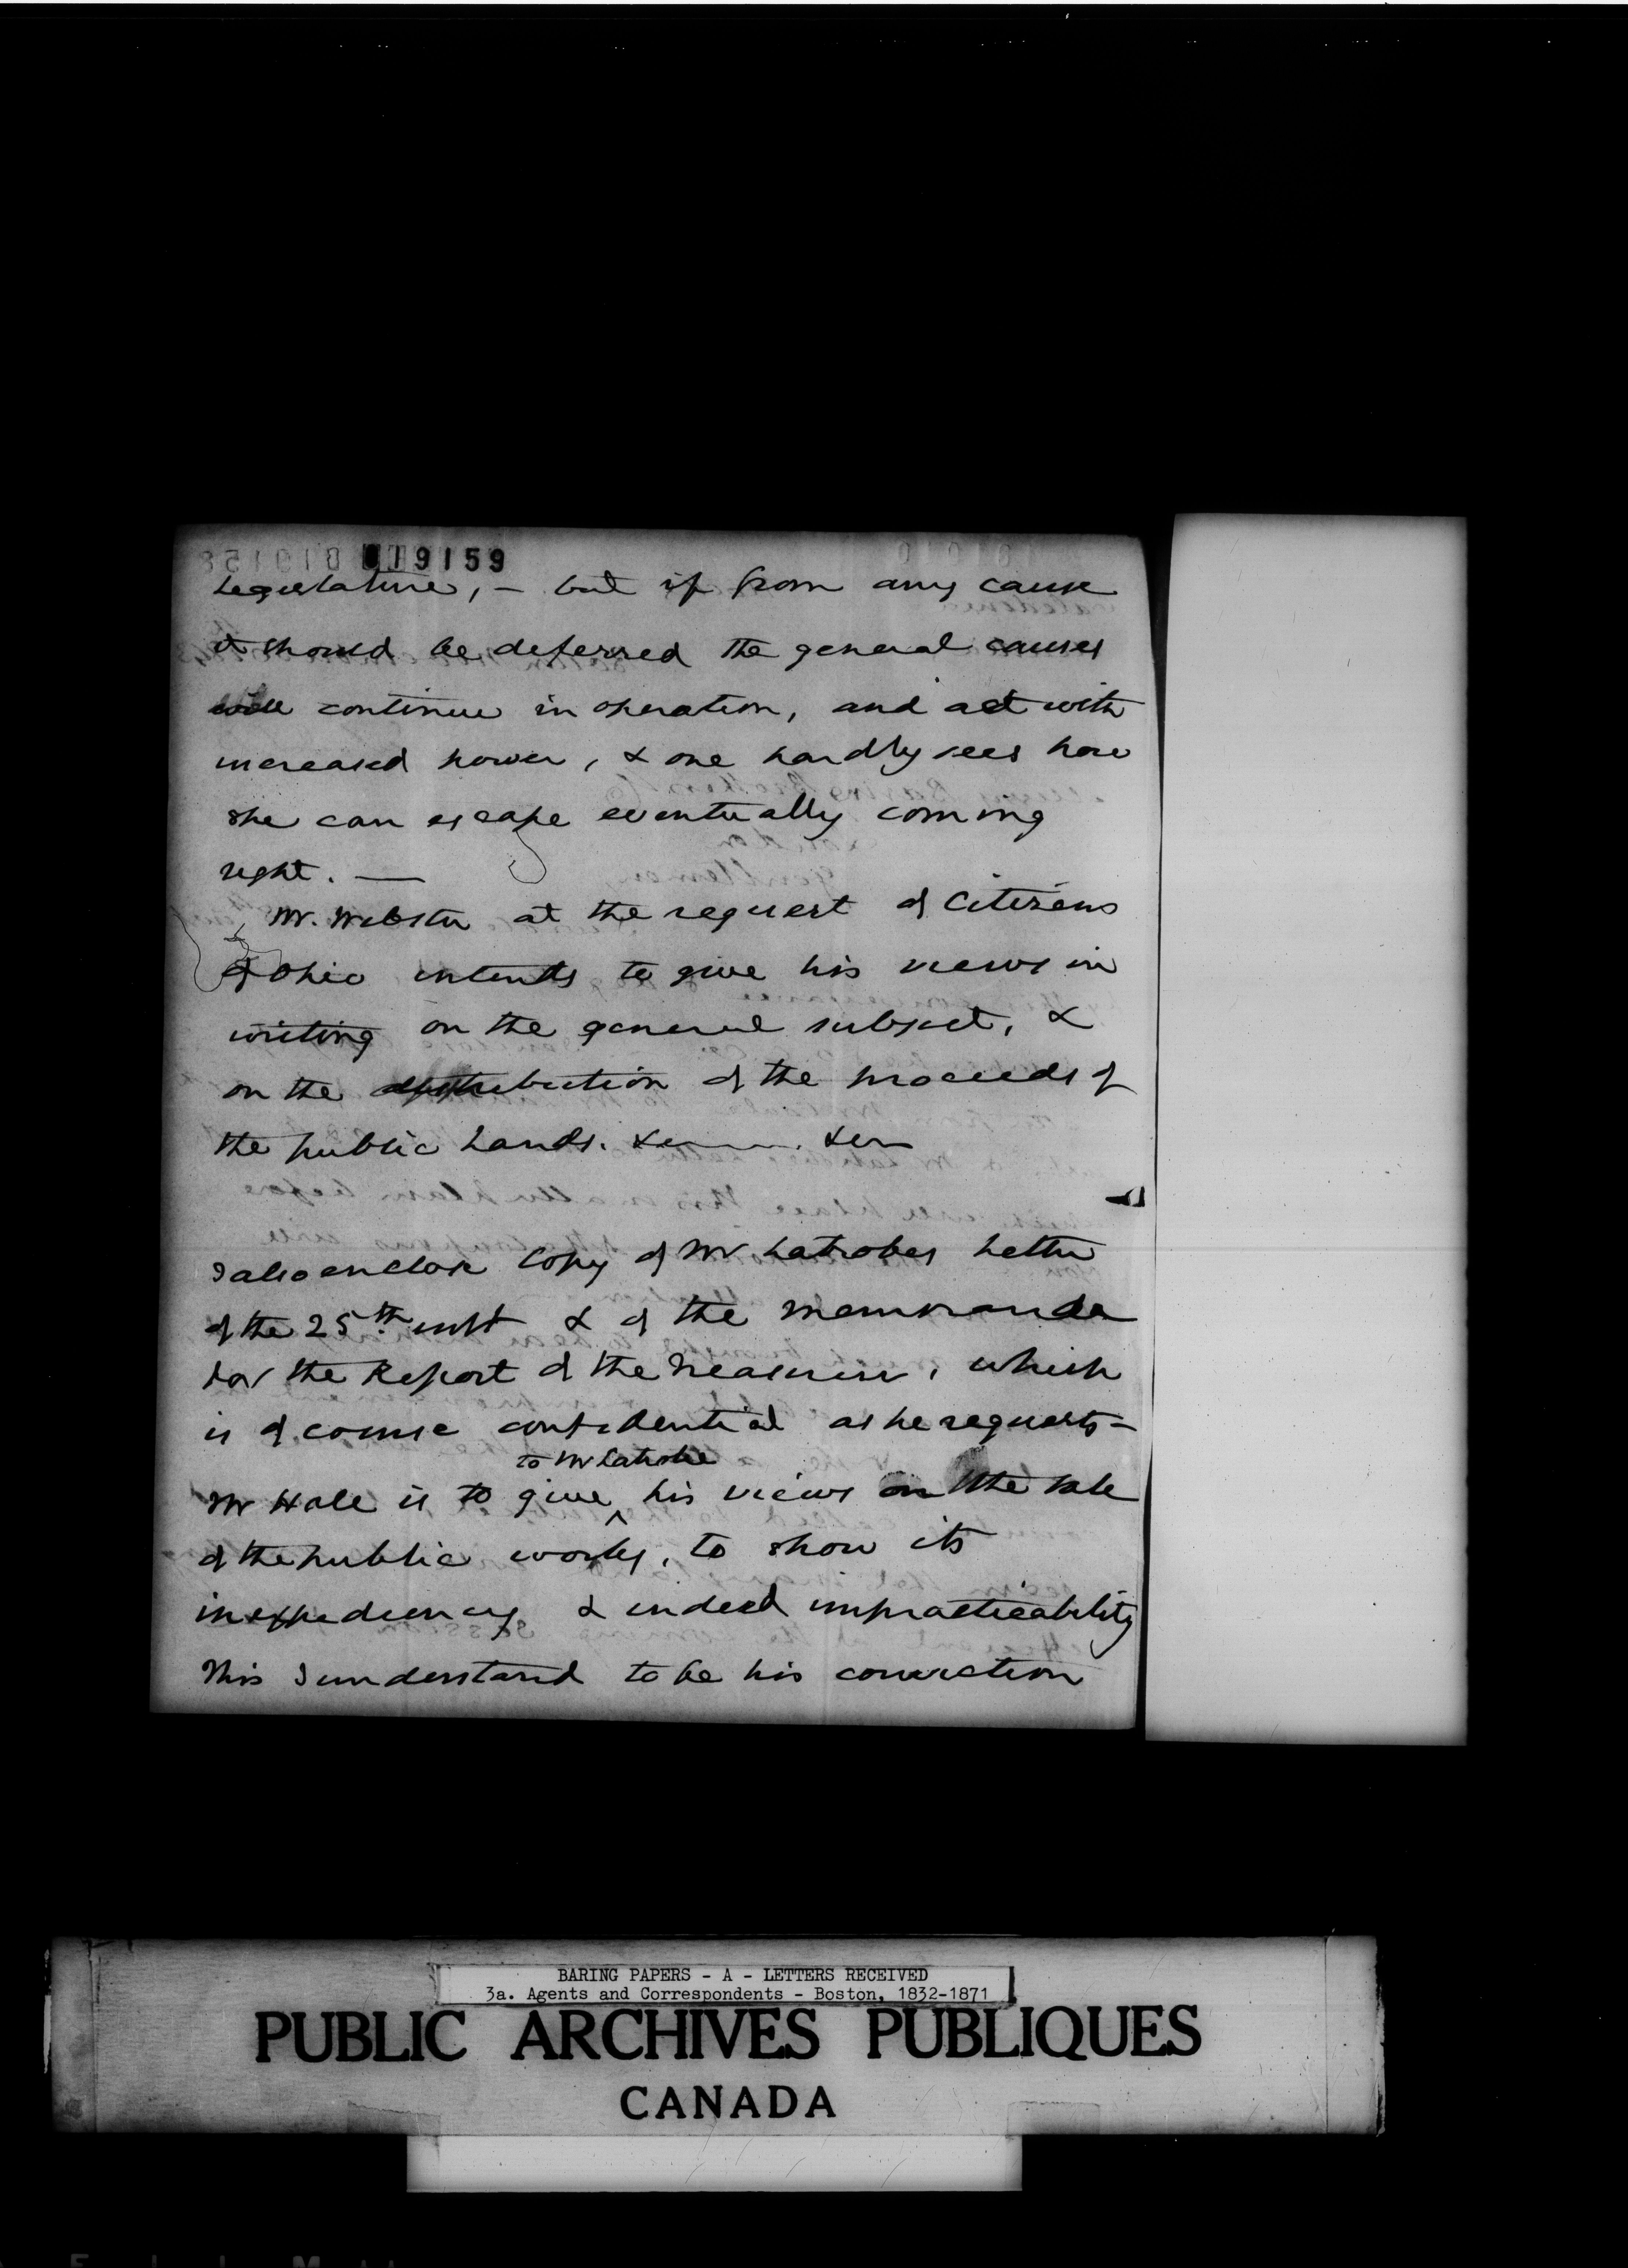 019159
Legislature, - but if from any cause
it should be deferred the general causes
will continue in operation, and act with
increased power, & one hardly sees how
she can escape eventually coming
right. —
Mr. Webster at the request of Citizens
of Ohio intends to give his views in
writing on the general subject, &
on the distribution of the proceeds of
the public Lands.
I also enclose Copy of Mr Latrobes Letter
of the 25th inst & of the memoranda
for the Report of the Treasurer, which
is of course confidential as he requests -
to Mr Latrobe
Mr Hale is to give ^ his views on the sale
of the public works, to show its
inexpediency & indeed impracticability
This I understand to be his conviction
BARING PAPERS - A - LETTERS RECEIVED
3a. Agents and Correspondents - Boston, 1832-1871
PUBLIC ARCHIVES PUBLIQUES
CANADA